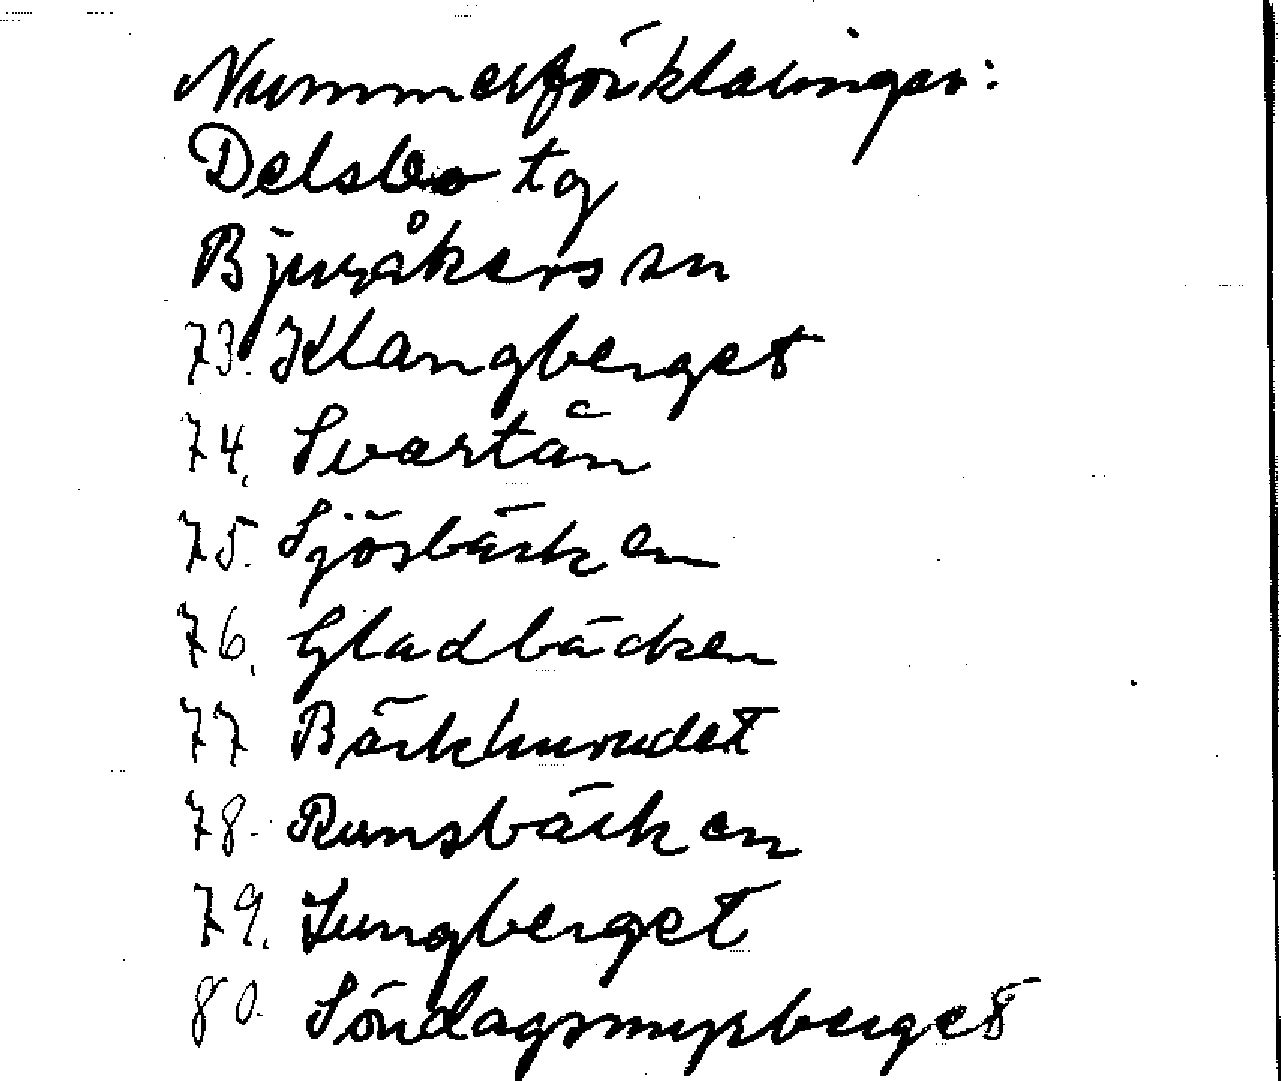 Nummerförklaringar:
Delsbo tg
Bjuråkers sn
73. Klangberget
74. Svartån
75. Sjösbäcken
76. Gladbäcken
77 Bäckhuvudet
78. Runsbäcken
79. Ljungberget
80. Söndagsmyrberget